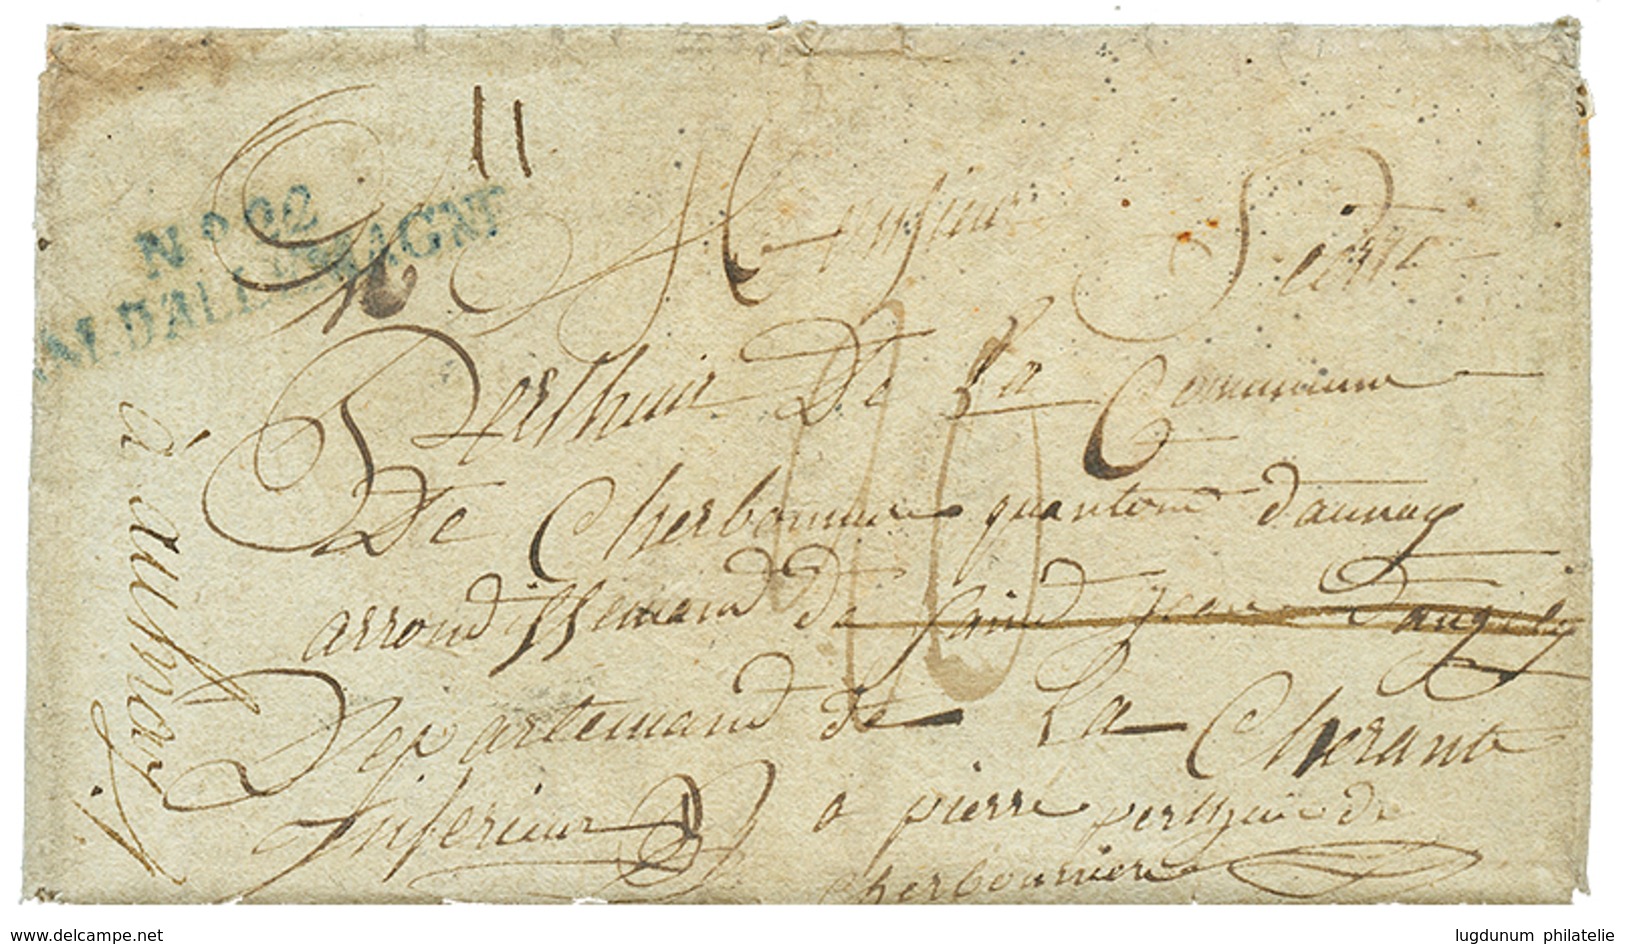 11
N° 22
AL. D'ALLEMAGNE
Monsieur Pierre
Perthuis De La Commune
De Cherbonniere quanton daunay
arrondissemand de saind Jean Dangely
Departemand de La Cherante
Inferieur a pierre perthuis de
cherbonniere
delcampe.net
lugdunum philatelie